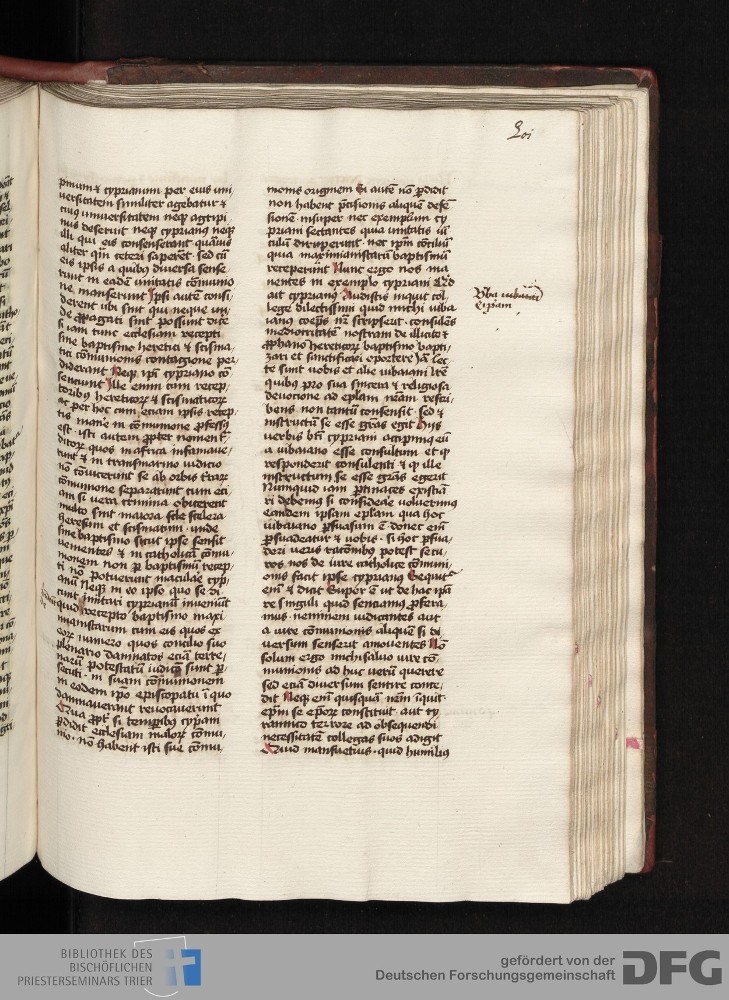 pinum et cyprianum per eius uni
uersitatem similiter agebatur et
cuius uniuersitatem neque agripi
nus deseruit neque cyprianus neque
illi qui eis consenserant quamuis
aliter quam ceteri saperent sed cum
eis ipsis a quibus diuersa sense
runt in eadem unitatis communio
ne manserunt Ipsi autem consi
derent ubi sint qui neque un
de propagati sint possunt dicere
si iam tunc ecclesiam recepti
sine baptismo heretici et scisma
tici communionis contagione per
diderant Neque ipsi cypriano con
sentiunt Ille enim tum recep
toribus hereticorum et scismaticorum
ac per hoc cum etiam ipsis recep
tis manere in communione professus
est isti autem propter nomen
ditorum quos in africa infamaue
runt et in transmarino iudicio
non conuicerunt se ab orbis terrarum
communione separarunt cum eti
am si uera crimina obicerent
multo sint maiora scelera
heresum et scismatum unde
sine baptismo sicut ipse sensit
uementes et in catholicam commu
nionem non per baptismum recep
ti non potuerunt maculare cypri
anum Neque in eo ipso quo se di
cunt imitari cyprianum inuenerunt
quid recepto baptismo maxi
mianistarum cum eis quos ex
eorum numero quos concilio suo
plenario damnatos etiam terre
narum potestatum iudiciis sunt per
secuti in suam communionem
in eodem ipso episcopatu in quo
damnauerant reuocauerunt
Qua propter si temporibus cypriani
perdidit ecclesiam malorum commu
nio non habent isti sue commu
nionis originem Si autem non perdidit
non habent precisionis aliquam defen
sionem insuper nec exemplum cy
priani sectantes quia unitatis uin
culum diruperunt nec ipsum concilium
quia maximianistarum baptismum
receperunt Nunc ergo nos ma
nentes in exemplo cypriani
ait cyprianus Audistis inquit col
lege dilectissimi quid michi iuba
ianus coepiscopus noster scripserit consulens
mediocritatem nostram de illicito et
prophano hereticorum baptismo bapti
zari et sanctificari oportere lec
te sint uobis et alie iubaiani littere
quibus pro sua sincera et religiosa
deuocione ad epistolam nostram rescri
bens non tantum consensit sed et
instructum se esse gratias egit Hiis
uerbis beati cypriani accipimus eum
a iubaiano esse consultum et quid
responderit consulenti et quod ille
instructum se esse gratias egerit
Numquid iam pertinaces existima
ri debemus si considerare uoluerimus
eandem ipsam epistolam qua hoc
iubaiano persuasum est donec enim
persuadeatur et nobis si hoc persua
deri ueris racionibus potest secu
ros nos de iure catholice communi
onis facit ipse cyprianus Sequitur
enim et dicit Superest ut de hac ipsa
re singuli quid senciamus profera
mus neminem iudicantes aut
a iure communionis aliquem si di
uersum senserit amouentes Non
solum ergo michi saluo iure com
munionis ad huc uerum querere
sed etiam diuersum sentire conce
dit Neque enim quisquam nostrum inquit
episcopum se episcoporum constituit aut ty
rannico terrore ad obsequendi
necessitatem collegas suos adigit
Quid mansuetius quid humilius
Verba iubaiani
BIBLIOTHEK DES
BISCHÖFLICHEN
PRIESTERSEMINARS TRIER
gefördert von der
Deutschen Forschungsgemeinschaft
DFG